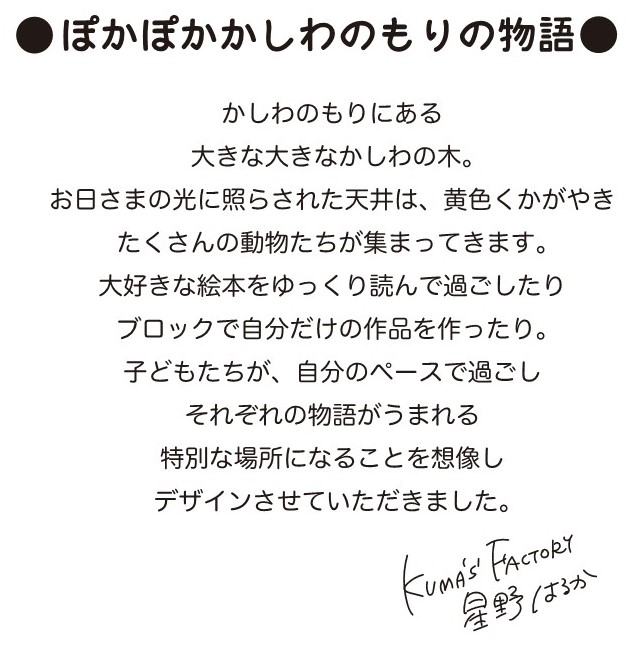 ●ぽかぽかかしわのもりの物語●
かしわのもりにある
大きな大きなかしわの木。
お日さまの光に照らされた天井は、黄色くかがやき
たくさんの動物たちが集まってきます。
大好きな絵本をゆっくり読んで過ごしたり
ブロックで自分だけの作品を作ったり。
子どもたちが、自分のペースで過ごし
それぞれの物語がうまれる
特別な場所になることを想像し
デザインさせていただきました。
KUMA'S' FACTORY
星野はるか